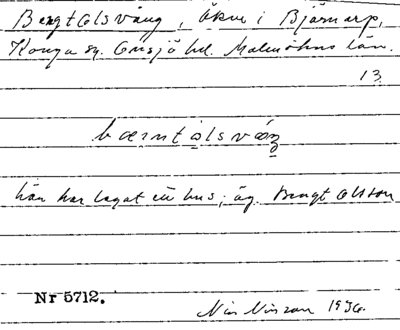 Bengt Olsväng, åker i Bjärnarp,
Konga sn. Onsjö hd. Malmöhus län.
13
här har legat ett hus; äg. Bengt Olsson
Nr 5712.
Nils Nilsson 1936.